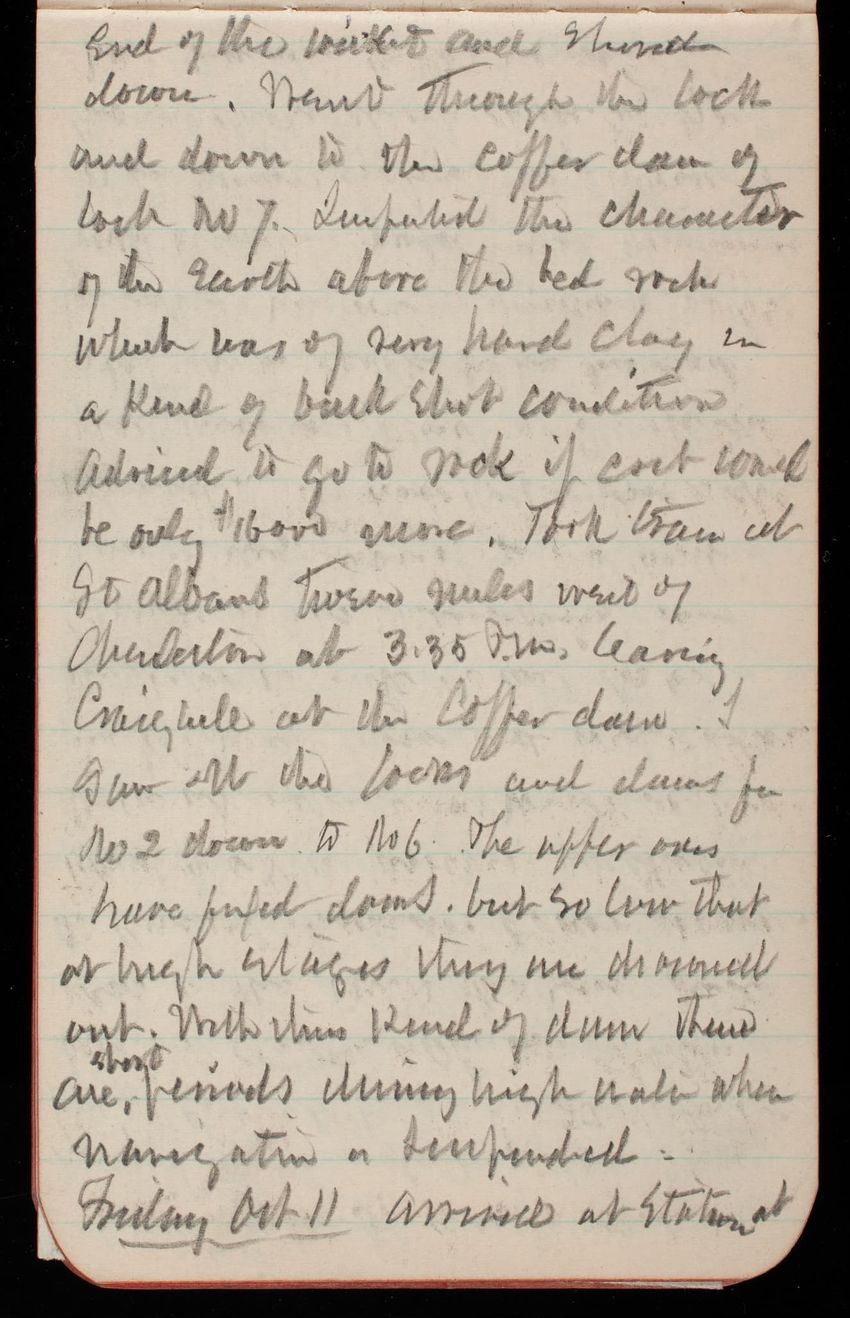 End of the wicket and Shored
down. Went through the lock
and down to the coffer dam of
lock No 7. Inspected the character
of the Earth above the bed rock
which was of very hard clay in
a Kind of buck Shot condition
Advised to go to rock if cost would
be only $16000 more. Took train at
St Albans twelve miles west of
Charleston at 3.35 P.m. leaving
Craighill at the Coffer dam. I
Saw all the locks and dams fm
No 2 down to No 6. The upper ones
have fixed dams. but So low that
at high stages they are drowned
out. With this Kind of dam there
are, short periods during high water when
navigation is Suspended -
Friday Oct 11 Arrived at Station at